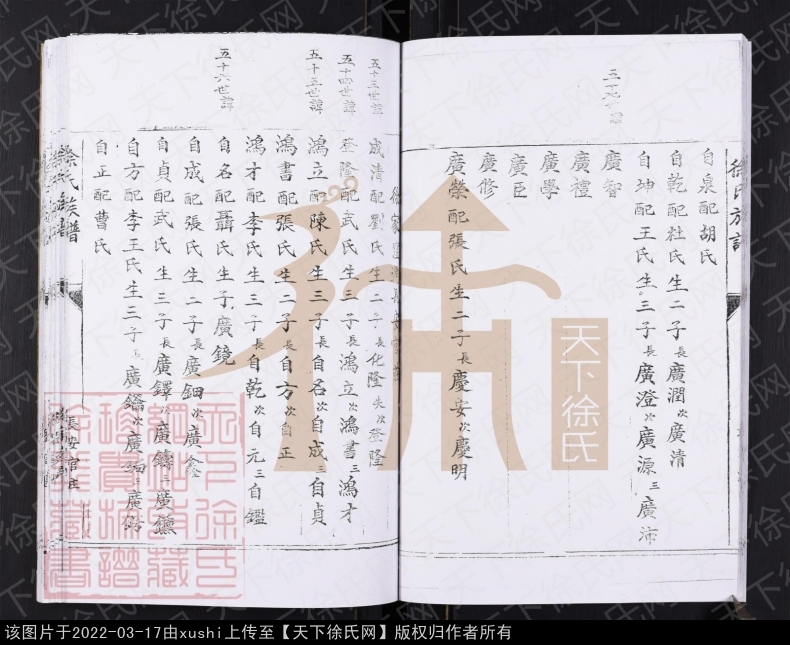 徐氏族譜
自泉配胡氏
自乾配杜氏生二子長廣潤次廣清
自坤配王氏生三子長廣澄次廣源三廣沛
廣智
廣禮
廣學
廣臣
廣修
廣榮配張氏生二子長慶安次慶明
五十三世諱
成清配劉氏生二子長化隆失次登隆
五十四世諱
登隆配武氏生三子長鴻立次鴻書三鴻才
五十五世諱
鴻立配陳氏生三子長自名次自成三自貞
鴻書配張氏生二子長自方次自正
鴻才配李氏生三子長自乾次自元三自鑑
五十六世諱
自名配聶氏生子廣鏡
自成配張氏生二子長廣鈿次廣鑫
自貞配武氏生三子長廣鐸次廣鑄三廣鑣
自方配李王氏生三子長廣鐇次廣
自正配曹氏
徐氏族譜
長安官庄
天下徐氏
天下徐氏网
该图片于2022-03-17由xushi上传至【天下徐氏网】版权归作者所有